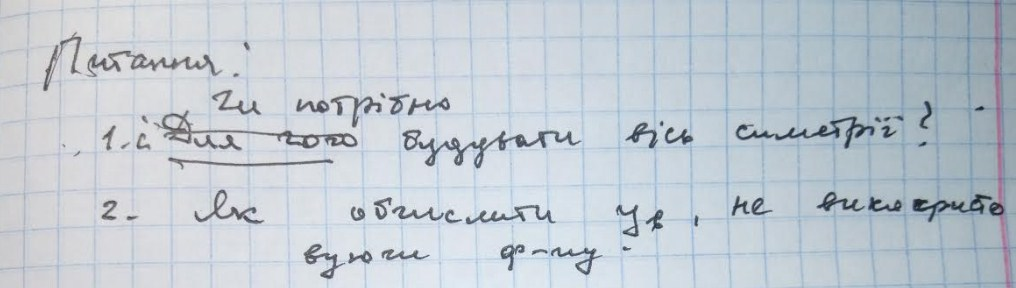 Питання:
Чи потрібно
1. Для чого будувати вісь симетрії?
2. Як обчислити yв, не використо
вуючи ф-лу